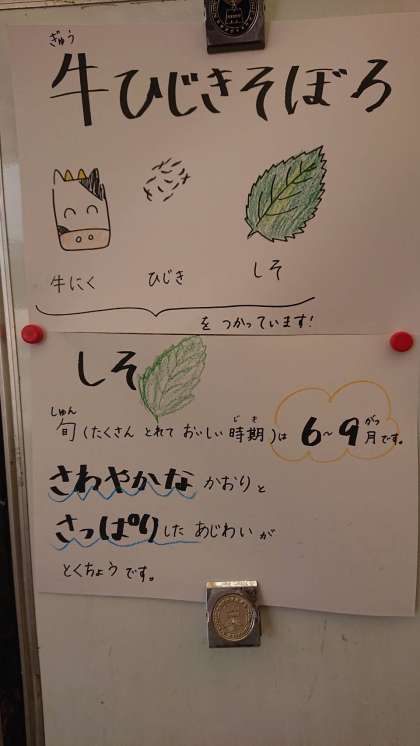 ぎゅう
牛ひじきそぼろ
牛にく ひじき しそ
をつかっています!
しそ
しゅん じき がつ
旬(たくさん とれて おいしい 時期)は 6~9月です。
さわやかな かおりと
さっぱりした あじわいが
とくちょうです。